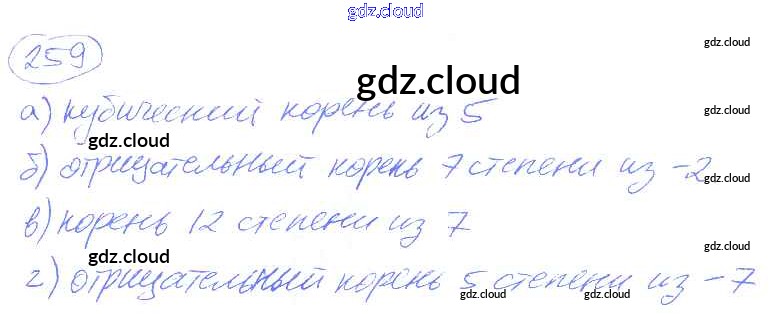 gdz.cloud
259
gdz.cloud
gdz.cloud
а) кубический корень из 5
gdz.cloud
gdz.cloud
б) отрицательный корень 7 степени из -2
gdz.cloud
в) корень 12 степени из 7
gdz.cloud
gdz.cloud
г) отрицательный корень 5 степени из -7
gdz.cloud
gdz.cloud